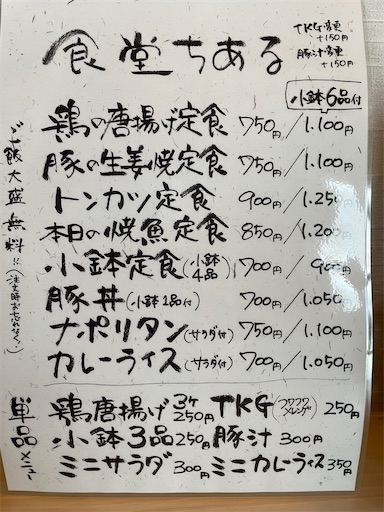 食堂ちある
TKG変更
+150円
豚汁変更
+150円
小鉢6品付
鶏の唐揚げ定食 750円/1.100円
豚の生姜焼定食 750円/1.100円
トンカツ定食 900円/1.250
本日の焼魚定食 850円/1.200円
小鉢定食(小鉢4品) 700円/900円
豚丼(小鉢1品付) 700円/1.050円
ナポリタン(サラダ付) 750円/1.100円
カレーライス(サラダ付) 700円/1.050円
ご飯大盛無料!!(注文時お忘れなく!)
単品メニュー
鶏唐揚げ3ケ250円 TKG(フワフワメレンゲ) 250円
小鉢3品250円 豚汁 300円
ミニサラダ 300円 ミニカレーライス 350円